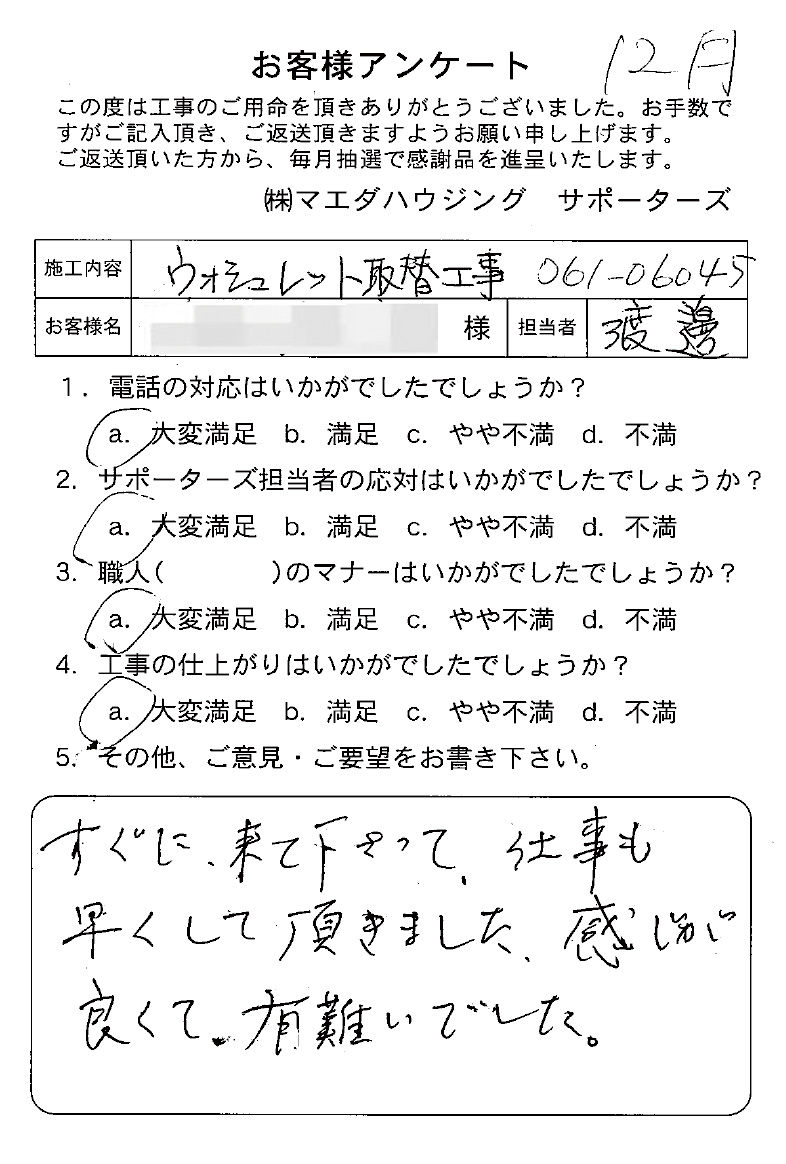 お客様アンケート 12月
この度は工事のご用命を頂きありがとうございました。お手数で
すがご記入頂き、ご返送頂きますようお願い申し上げます。
ご返送頂いた方から、毎月抽選で感謝品を進呈いたします。
㈱マエダハウジング サポーターズ
施工内容 ウォシュレット取替工事 061-06045
お客様名 様 担当者 渡邊
1. 電話の対応はいかがでしたでしょうか?
a. 大変満足 b. 満足 c. やや不満 d. 不満
2. サポーターズ担当者の応対はいかがでしたでしょうか?
a. 大変満足 b. 満足 c. やや不満 d. 不満
3. 職人( )のマナーはいかがでしたでしょうか?
a. 大変満足 b. 満足 c. やや不満 d. 不満
4. 工事の仕上がりはいかがでしたでしょうか?
a. 大変満足 b. 満足 c. やや不満 d. 不満
5. その他、ご意見・ご要望をお書き下さい。
すぐに、来て下さって、仕事も
早くして頂きました、感じが
良くて、有難いでした。